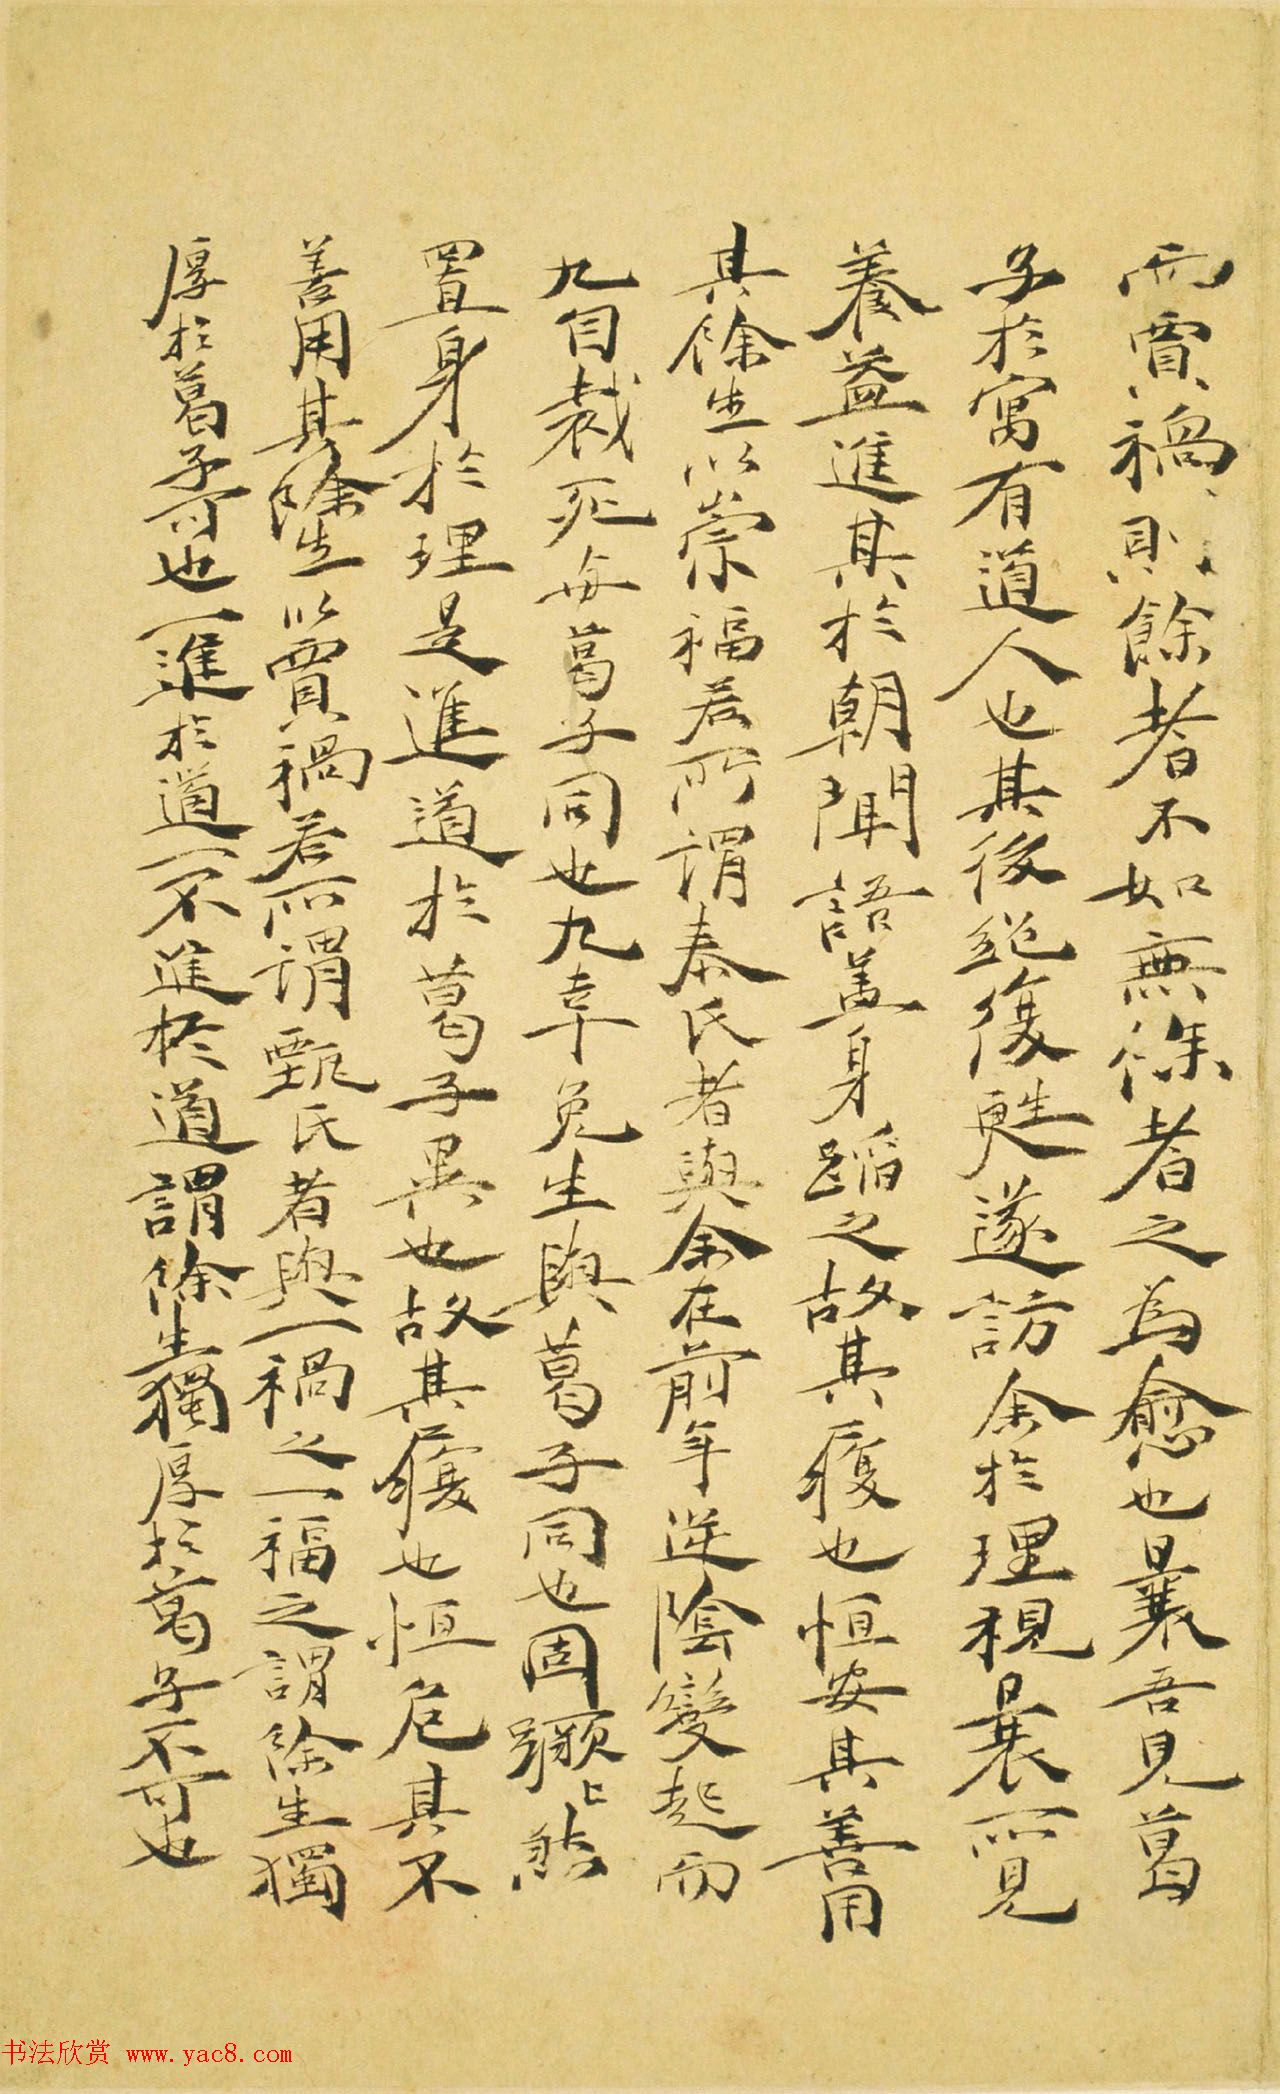 而賈禍則餘者不如無餘者之為愈也曩吾見葛
子於寓有道人也其後絕復甦遂訪余於理視曩所見
養益進其於朝聞語蓋身蹈之故其履也恒安其善用
其餘生以崇福若所謂秦氏者與余在前年逆陰變起而
九自裁死與葛子同也九幸免生與葛子同也固蹶上
置身於理是進道於葛子異也故其履也恒危其不
善用其餘生以賈禍若所謂甄氏者與一禍之一福之謂餘生獨
厚於葛子可也一進於道一不進於道謂餘生獨厚於葛子不可也
书法欣赏 www.yac8.com